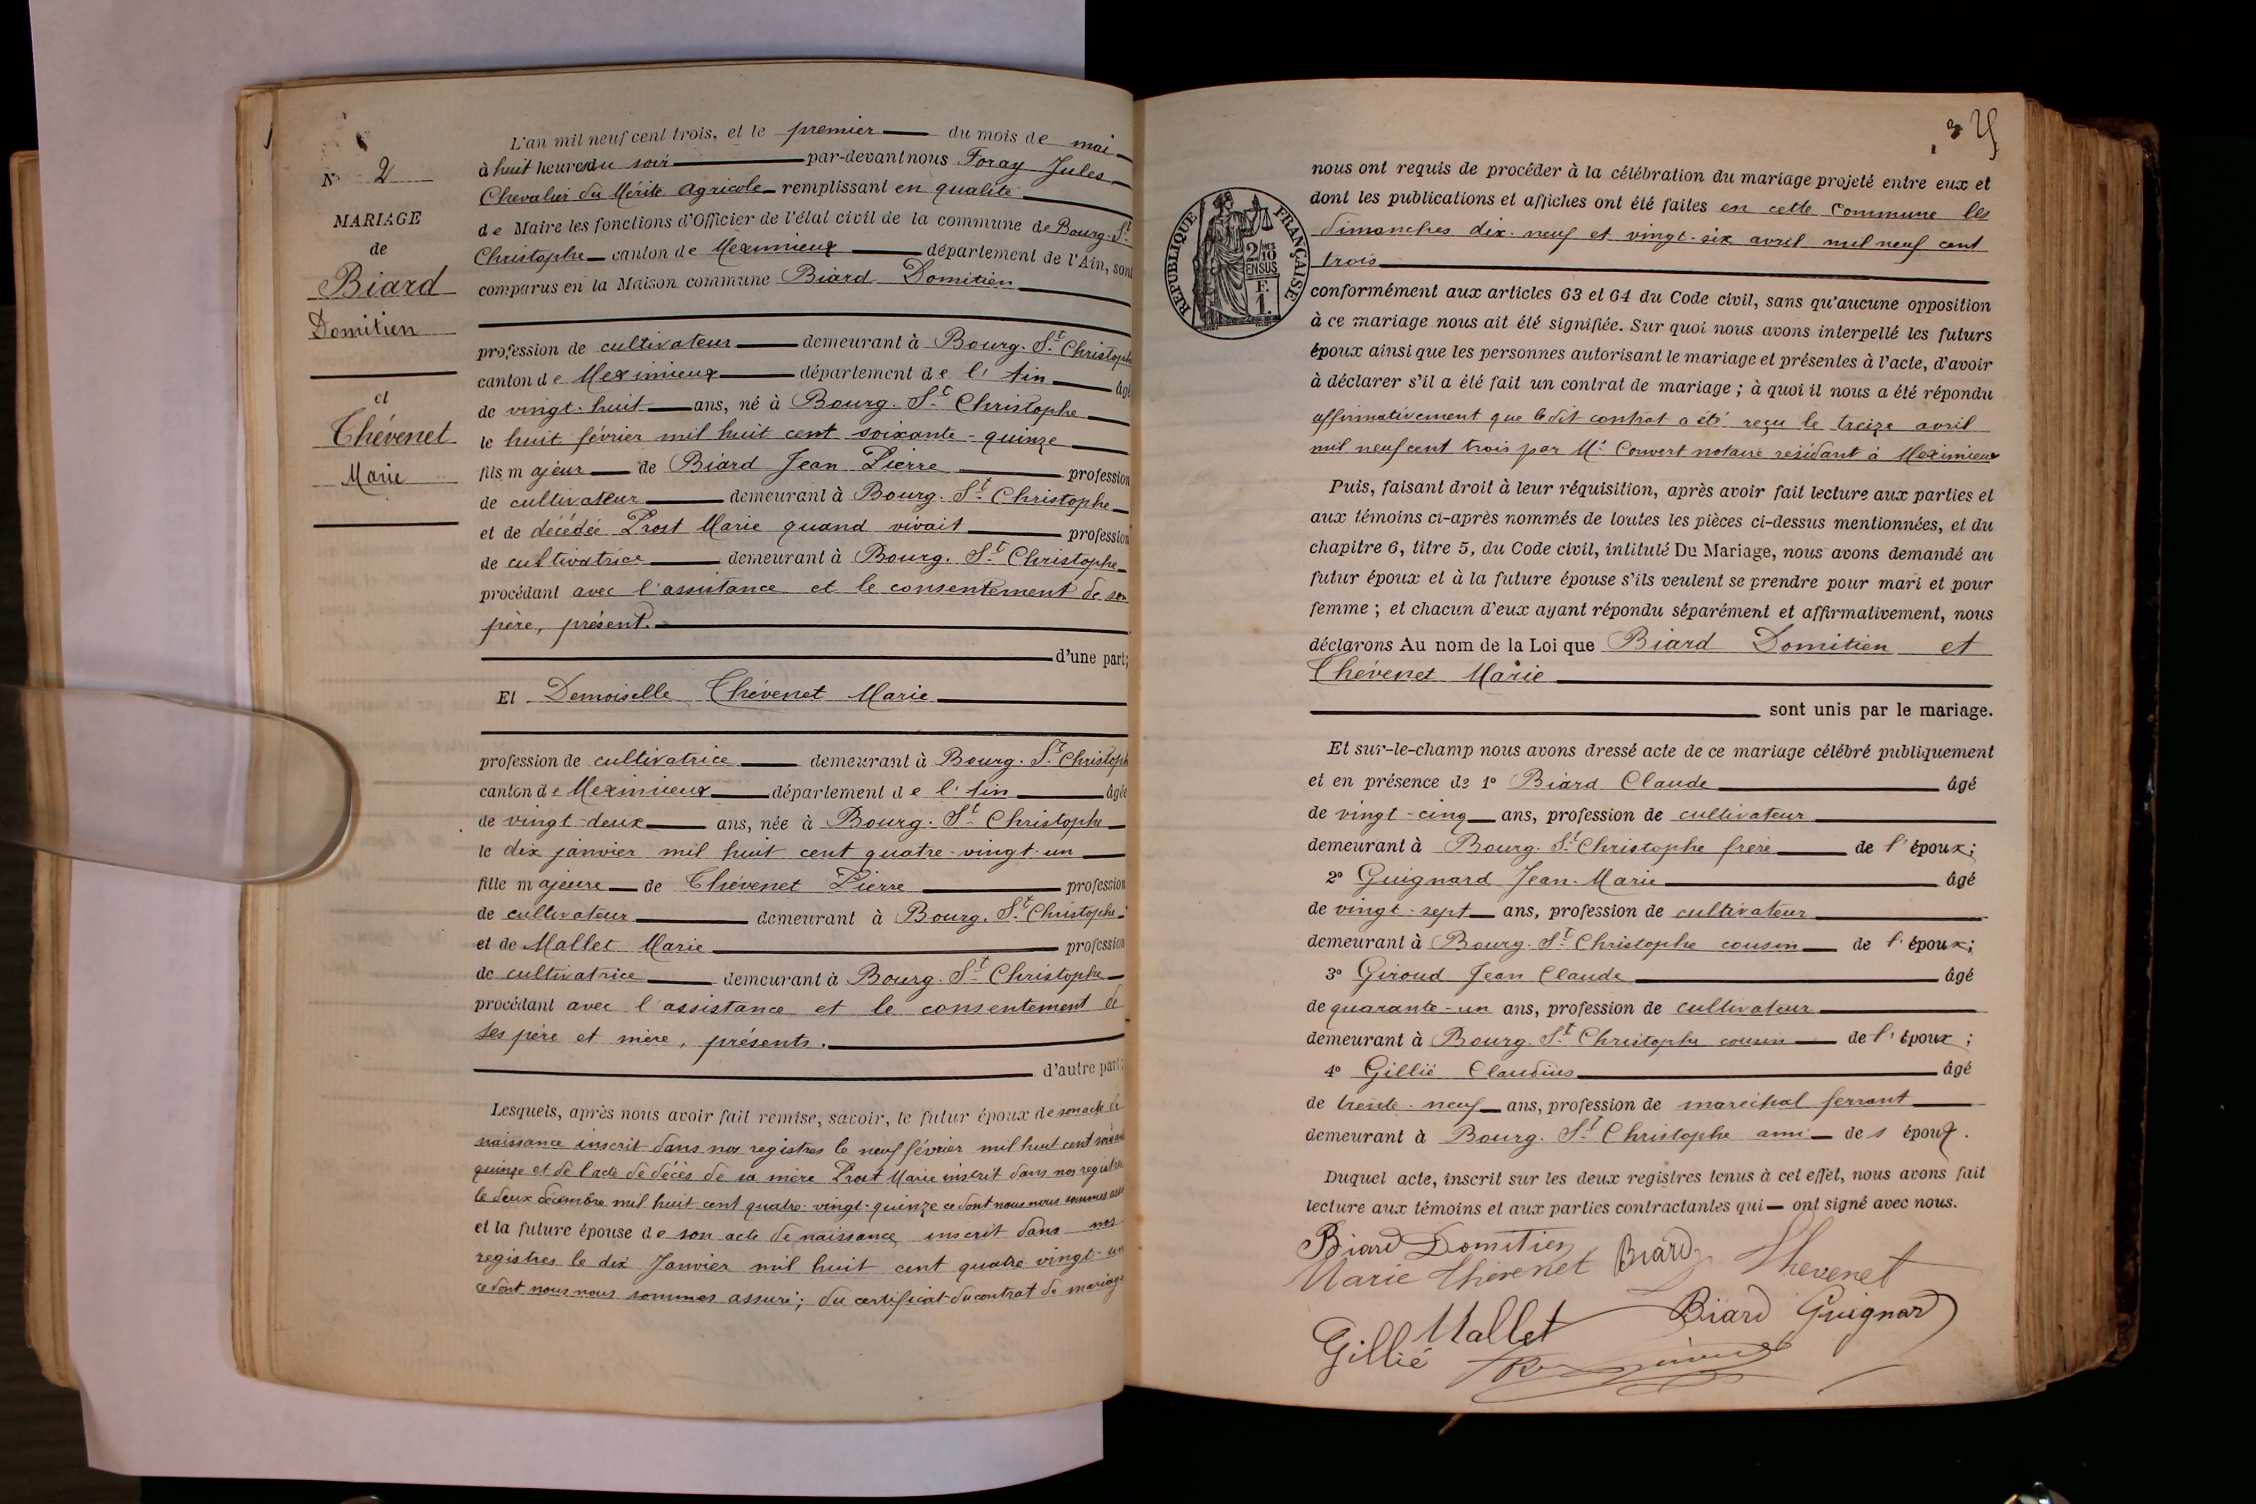 N° 2
MARIAGE
de
Biard
Domitien
et
Thévenet
Marie
L'an mil neuf cent trois, et le premier du mois de mai
à huit heures du soir par-devant nous Foray Jules,
Chevalier du Mérite Agricole remplissant en qualité
de Maire les fonctions d'Officier de l'état civil de la commune de Bourg-St-
Christophe canton de Meximieux département de l'Ain, sont
comparus en la Maison commune Biard Domitien
profession de cultivateur demeurant à Bourg-St-Christophe
canton de Meximieux département de l'Ain âgé
de vingt-huit ans, né à Bourg-St-Christophe
le huit février mil huit cent soixante-quinze
fils majeur de Biard Jean Pierre profession
de cultivateur demeurant à Bourg-St-Christophe
et de décédée Prost Marie quand vivait profession
de cultivatrice demeurant à Bourg-St-Christophe
procédant avec l'assistance et le consentement de son
père, présent.
d'une part;
Et Demoiselle Thévenet Marie
profession de cultivatrice demeurant à Bourg-St-Christoph
canton de Meximieux département de l'Ain âgée
de vingt-deux ans, née à Bourg-St-Christophe
le dix janvier mil huit cent quatre-vingt-un
fille majeure de Thévenet Pierre profession
de cultivateur demeurant à Bourg-St-Christophe
et de Mallet Marie profession
de cultivatrice demeurant à Bourg-St-Christophe
procédant avec l'assistance et le consentement de
ses père et mère, présents.
d'autre part;
Lesquels, après nous avoir fait remise, savoir, le futur époux de son acte de
naissance inscrit dans nos registres le neuf février mil huit cent soixante
quinze et de l'acte de décès de sa mère Prost Marie inscrit dans nos registres
le deux décembre mil huit cent quatre-vingt-quinze ce dont nous nous sommes assu
et la future épouse de son acte de naissance inscrit dans nos
registres le dix Janvier mil huit cent quatre vingt-un
ce dont nous nous sommes assuré; du certificat du contrat de mariage
RÉPUBLIQUE FRANÇAISE
2/10 EN SUS
F. 1.
nous ont requis de procéder à la célébration du mariage projeté entre eux et
dont les publications et affiches ont été faites en cette Commune les
dimanches dix-neuf et vingt-six avril mil neuf cent
trois
conformément aux articles 63 et 64 du Code civil, sans qu'aucune opposition
à ce mariage nous ait été signifiée. Sur quoi nous avons interpellé les futurs
époux ainsi que les personnes autorisant le mariage et présentes à l'acte, d'avoir
à déclarer s'il a été fait un contrat de mariage; à quoi il nous a été répondu
affirmativement que ledit contrat a été reçu le treize avril
mil neuf cent trois par Me Convert notaire résidant à Meximieux
Puis, faisant droit à leur réquisition, après avoir fait lecture aux parties et
aux témoins ci-après nommés de toutes les pièces ci-dessus mentionnées, et du
chapitre 6, titre 5, du Code civil, intitulé Du Mariage, nous avons demandé au
futur époux et à la future épouse s'ils veulent se prendre pour mari et pour
femme; et chacun d'eux ayant répondu séparément et affirmativement, nous
déclarons Au nom de la Loi que Biard Domitien et
Thévenet Marie
sont unis par le mariage.
Et sur-le-champ nous avons dressé acte de ce mariage célébré publiquement
et en présence de 1° Biard Claude âgé
de vingt-cinq ans, profession de cultivateur
demeurant à Bourg-St-Christophe frère de l'époux;
2° Guignard Jean-Marie âgé
de vingt-sept ans, profession de cultivateur
demeurant à Bourg-St-Christophe cousin de l'époux;
3° Giroud Jean Claude âgé
de quarante-un ans, profession de cultivateur
demeurant à Bourg-St-Christophe cousin de l'époux;
4° Gillié Claudius âgé
de trente-neuf ans, profession de maréchal ferrant
demeurant à Bourg-St-Christophe ami des époux.
Duquel acte, inscrit sur les deux registres tenus à cet effet, nous avons fait
lecture aux témoins et aux parties contractantes qui ont signé avec nous.
Biard Domitien
Marie Thévenet Biard Thevenet
Mallet Biard Guignard
Gillié